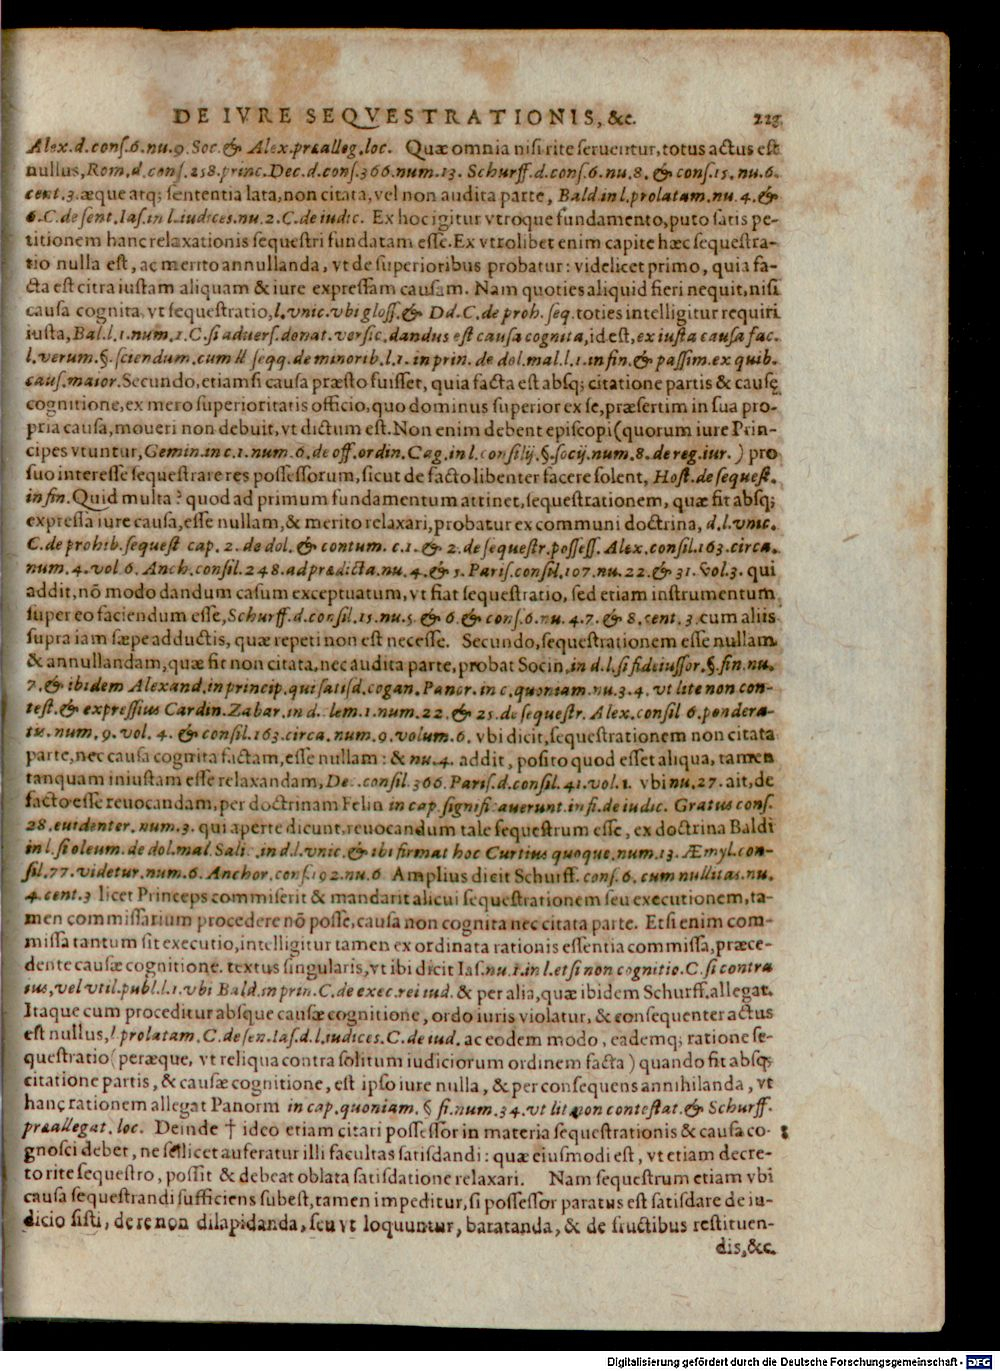 DE IVRE SEQVESTRATIONIS, &c. 223
Alex.d.cons.6.nu.9.Soc.& Alex.præalleg.loc. Quæ omnia nisi rite seruentur, totus actus est
nullus, Rom.d.cons.258.princ.Dec.d.cons.366.num.13. Schurff.d.cons.6.nu.8, & cons.15.nu.6.
cent.3.æque atq; sententia lata, non citata, vel non audita parte, Bald.in l.prolatam.nu.4.&
6.C.de sent.Ias.in l.iudices.nu.2.C.de iudic. Ex hoc igitur vtroque fundamento, puto satis pe-
titionem hanc relaxationis sequestri fundatam esse. Ex vtrolibet enim capite hæc sequestra-
tio nulla est, ac merito annullanda, vt de superioribus probatur: videlicet primo, quia fa-
cta est citra iustam aliquam & iure expressam causam. Nam quoties aliquid fieri nequit, nisi
causa cognita, vt sequestratio, l.vnic.vbi gloss.& Dd.C.de proh.seq.toties intelligitur requiri
iusta, Bal.l.1.num.1.C.si aduers.donat.versic.dandus est causa cognita, id est, ex iusta causa fac.
l.verum.§.sciendum.cum ll seqq.de minorib.l.1.in prin.de dol.mal.l.1.in fin.& passim.ex quib.
caus.maior. Secundo, etiamsi causa præsto fuisset, quia facta est absq; citatione partis & causę
cognitione, ex mero superioritatis officio, quo dominus superior ex se, præsertim in sua pro-
pria causa, moueri non debuit, vt dictum est. Non enim debent episcopi (quorum iure Prin-
cipes vtuntur, Gemin.in c.1.num.6.de off.ordin.Cag.in l.consilij.§.socij.num.8.de reg.iur.) pro
suo interesse sequestrare res possessorum, sicut de facto libenter facere solent, Host.de sequest.
in fin. Quid multa? quod ad primum fundamentum attinet, sequestrationem, quæ fit absq;
expressa iure causa, esse nullam, & merito relaxari, probatur ex communi doctrina, d.l.vnic.
C.de prohib.sequest cap. 2. de dol. & contum. c.1.& 2.de sequestr.possess. Alex.consil.163.circa.
num.4.vol 6. Anch.consil.248.ad prædicta.nu.4.& 5. Paris.consil.107.nu.22.& 31.Vol.3. qui
addit, nõ modo dandum casum exceptuatum, vt fiat sequestratio, sed etiam instrumentum
super eo faciendum esse, Schurff.d.consil.15.nu.5.& 6.& cons.6.nu.4.7.& 8.cent.3.cum aliis
supra iam sæpe adductis, quæ repeti non est necesse. Secundo, sequestrationem esse nullam
& annullandam, quæ fit non citata, nec audita parte, probat Socin.in d.l.si fideiussor.§.fin.nu.
7.& ibidem Alexand.in princip.qui satisd.cogan.Panor.in c.quoniam.nu.3.4.vt lite non con-
test.& expressius Cardin.Zabar.in d. lem.1.num.22.& 25.de sequestr. Alex.consil 6.pondera-
tis.num.9.vol.4.& consil.163.circa.num.9.volum.6. vbi dicit, sequestrationem non citata
parte, nec causa cognita factam, esse nullam: & nu.4. addit, posito quod esset aliqua, tamen
tanquam iniustam esse relaxandam, Dec.consil.366.Paris.d.consil.41.vol.1. vbi nu.27.ait, de
facto esse reuocandam, per doctrinam Felin in cap.significauerunt.in fi.de iudic. Gratus cons.
28.euidenter.num.3. qui aperte dicunt, reuocandum tale sequestrum esse, ex doctrina Baldi
in l.si oleum.de dol.mal Salic.in d.l.vnic.& ibi firmat hoc Curtius quoque.num.13. Æmyl.con-
sil.77.videtur.num.6. Anchor.cons.192.nu.6 Amplius dicit Schurff. cons.6.cum nullitas.nu.
4.cent.3 licet Princeps commiserit & mandarit alicui sequestrationem seu executionem, ta-
men commissarium procedere nõ posse, causa non cognita nec citata parte. Etsi enim com-
missa tantum sit executio, intelligitur tamen ex ordinata rationis essentia commissa, præce-
dente causæ cognitione. textus singularis, vt ibi dicit Ias.nu.1.in l.etsi non cognitio.C.si contra
ius, vel vtil.publ.l.1.vbi Bald.in prin.C.de exec.rei iud. & per alia, quæ ibidem Schurff.allegat.
Itaque cum proceditur absque causæ cognitione, ordo iuris violatur, & consequenter actus
est nullus, l prolatam.C.de sen.Ias.d.l.iudices.C.de iud. ac eodem modo, eademq; ratione se-
questratio (peræque, vt reliqua contra solitum iudiciorum ordinem facta) quando fit absq;
citatione partis, & causæ cognitione, est ipso iure nulla, & per consequens annihilanda, vt
hanc rationem allegat Panorm in cap.quoniam.§ fi.num.34.vt lit non contestat.& Schurff.
præallegat.loc. Deinde † ideo etiam citari possessor in materia sequestrationis & causa co- 8
gnosci debet, ne scilicet auferatur illi facultas satisdandi: quæ eiusmodi est, vt etiam decre-
to rite sequestro, possit & debeat oblata satisdatione relaxari. Nam sequestrum etiam vbi
causa sequestrandi sufficiens subest, tamen impeditur, si possessor paratus est satisdare de iu-
dicio sisti, de re non dilapidanda, seu vt loquuntur, baratanda, & de fructibus restituen-
dis, &c.
Digitalisierung gefördert durch die Deutsche Forschungsgemeinschaft - DFG